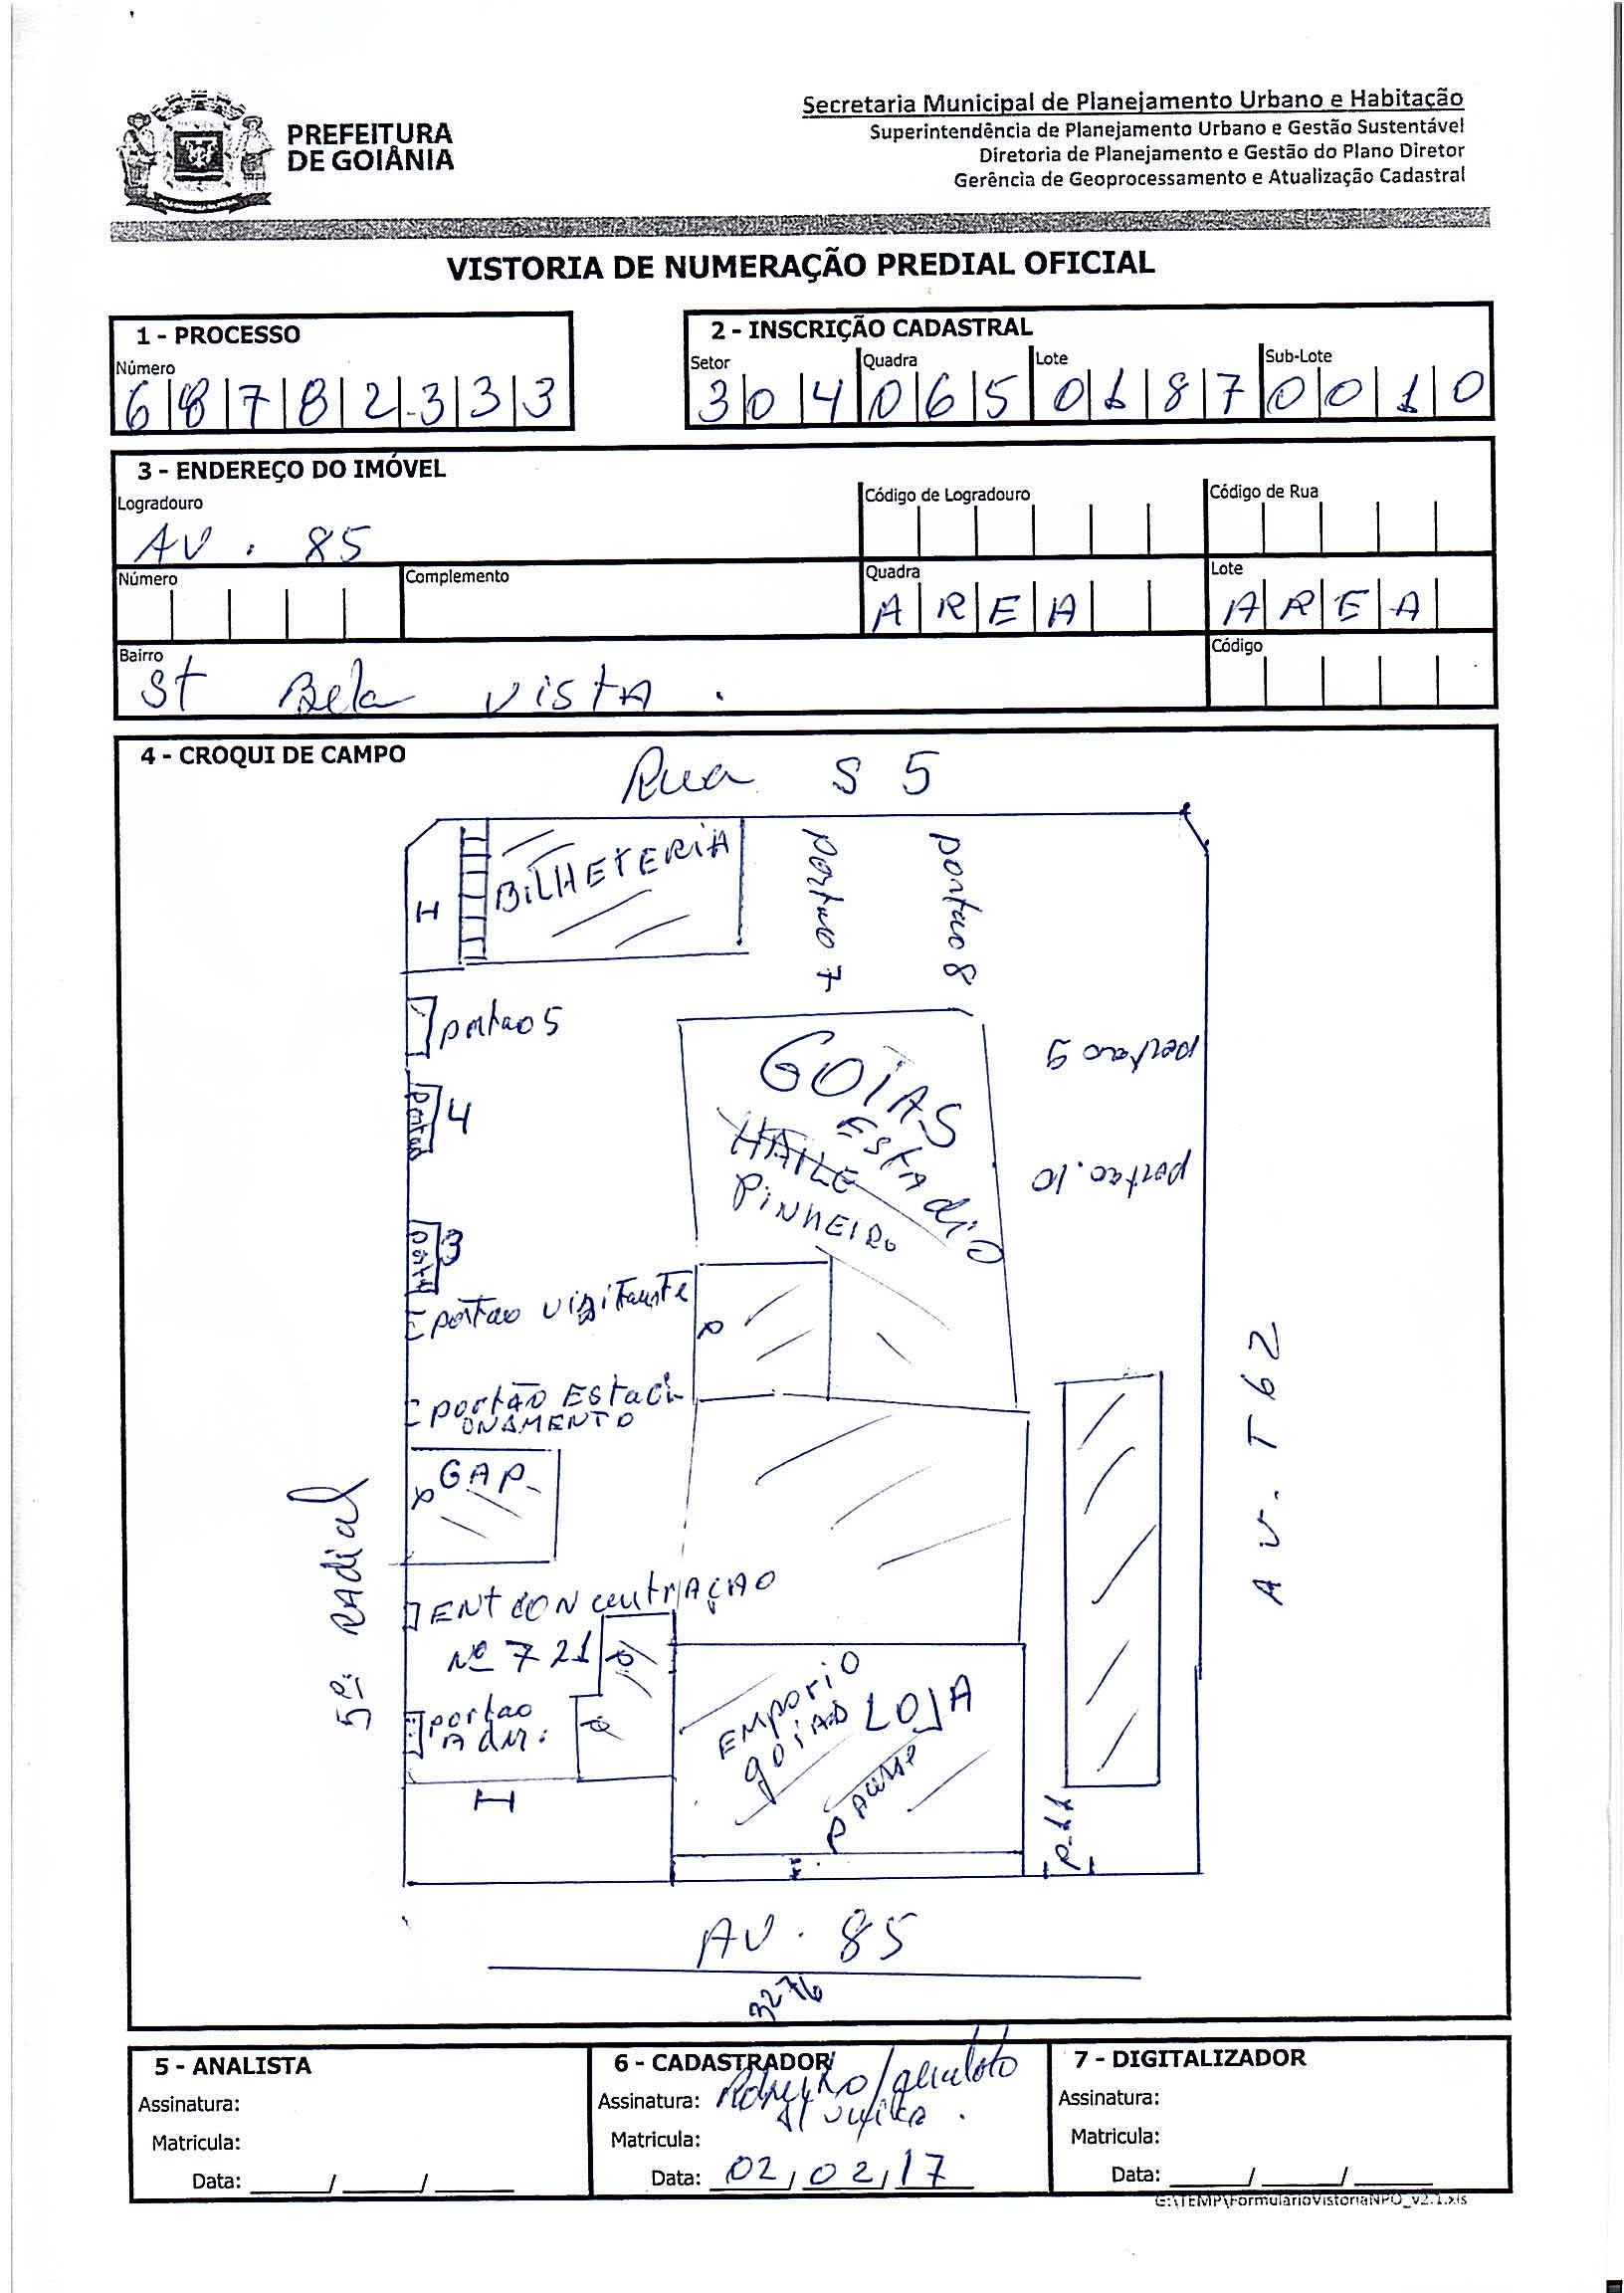 PREFEITURA
DE GOIÂNIA
Secretaria Municipal de Planejamento Urbano e Habitação
Superintendência de Planejamento Urbano e Gestão Sustentável
Diretoria de Planejamento e Gestão do Plano Diretor
Gerência de Geoprocessamento e Atualização Cadastral
VISTORIA DE NUMERAÇÃO PREDIAL OFICIAL
1 - PROCESSO
Número
6 8 7 8 2 3 3 3
2 - INSCRIÇÃO CADASTRAL
Setor Quadra Lote Sub-Lote
3 0 4 0 6 5 0 1 8 7 0 0 1 0
3 - ENDEREÇO DO IMÓVEL
Logradouro Código de Logradouro Código de Rua
AV. 85
Número Complemento Quadra Lote
A R E A A R E A
Bairro Código
St Bela vistA.
4 - CROQUI DE CAMPO
Rua S 5
BiLHETERiA
portao 7
portao 8
H
portao 5
portao 9
portao 4
portao.10
GOIAS
ESTAdiO
HAILE
PiNHEIRo
3
portao visitante
portão Estaci
ONAMENTO
GAP
5ª RAdial
AV. T 62
ENT CONcentrAÇAO
Nº 721
portao
Adm.
EMporiO
goiAS LOJA
H
P.11
AV. 85
3276
5 - ANALISTA
Assinatura:
Matricula:
Data: ____/____/____
6 - CADASTRADOR
Assinatura:
Matricula:
Data: 02/02/17
7 - DIGITALIZADOR
Assinatura:
Matricula:
Data: ____/____/____
G:\TEMP\FormularioVistoriaNPO_v2.1.xls